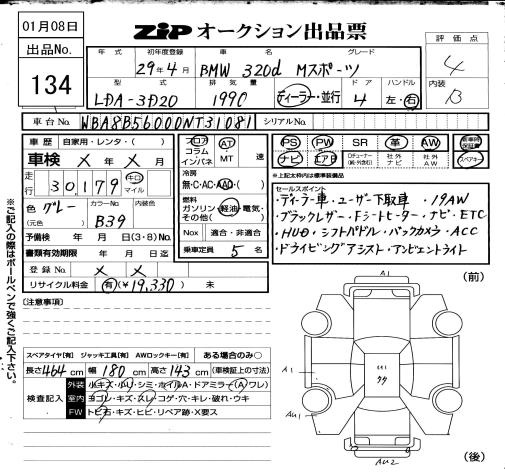 01月08日
出品No.
134
ZIP オークション出品票
評価点
4
内装
B
年式 初年度登録 車名 グレード
29年4月 BMW 320d Mスポーツ
型式 排気量 ドア ハンドル
LDA-3D20 1990 ディーラー・並行 4 左・右
車台No. WBA8B56000NT31081 シリアルNo.
車歴 自家用・レンタ・( )
車検 × 年 × 月
走行 30,179 キロ マイル
色 グレー カラーNo. B39 内装色
(元色)
予備検 年 月 日(3・8)No.
書類有効期限 年 月 日迄
登録No. × ×
リサイクル料金 有(¥19,330) 未
フロア AT
コラム
インパネ MT 速
冷房
無・C・AC・AAC・( )
燃料
ガソリン・軽油・電気・
その他( )
Nox 適合・非適合
乗車定員 5 名
PS PW SR 革 AW
ナビ エアB 社外ナビ 社外AW スペアキー
※上記太枠内は標準装備品
セールスポイント
・ディーラー車・ユーザー下取車・19AW
・ブラックレザー・Fシートヒーター・ナビ・ETC
・HUD・シフトパドル・バックカメラ・ACC
・ドライビングアシスト・アンビエントライト
※ご記入の際はボールペンで強くご記入下さい。
[注意事項]
スペアタイヤ[有] ジャッキ工具[有] AWロックキー[有] ある場合のみ○
長さ464cm 幅180cm 高さ143cm (車検証上の寸法)
検査記入
外装 小キズ・小リ・シミ・ホイルA・ドアミラー(A ワレ)
室内 ヨゴレ・キズ・スレ・コゲ・穴・キレ・破れ・ウキ
FW トビ石・キズ・ヒビ・リペア跡・X要ス
(前)
A1
A1
AU1
AU2
(後)